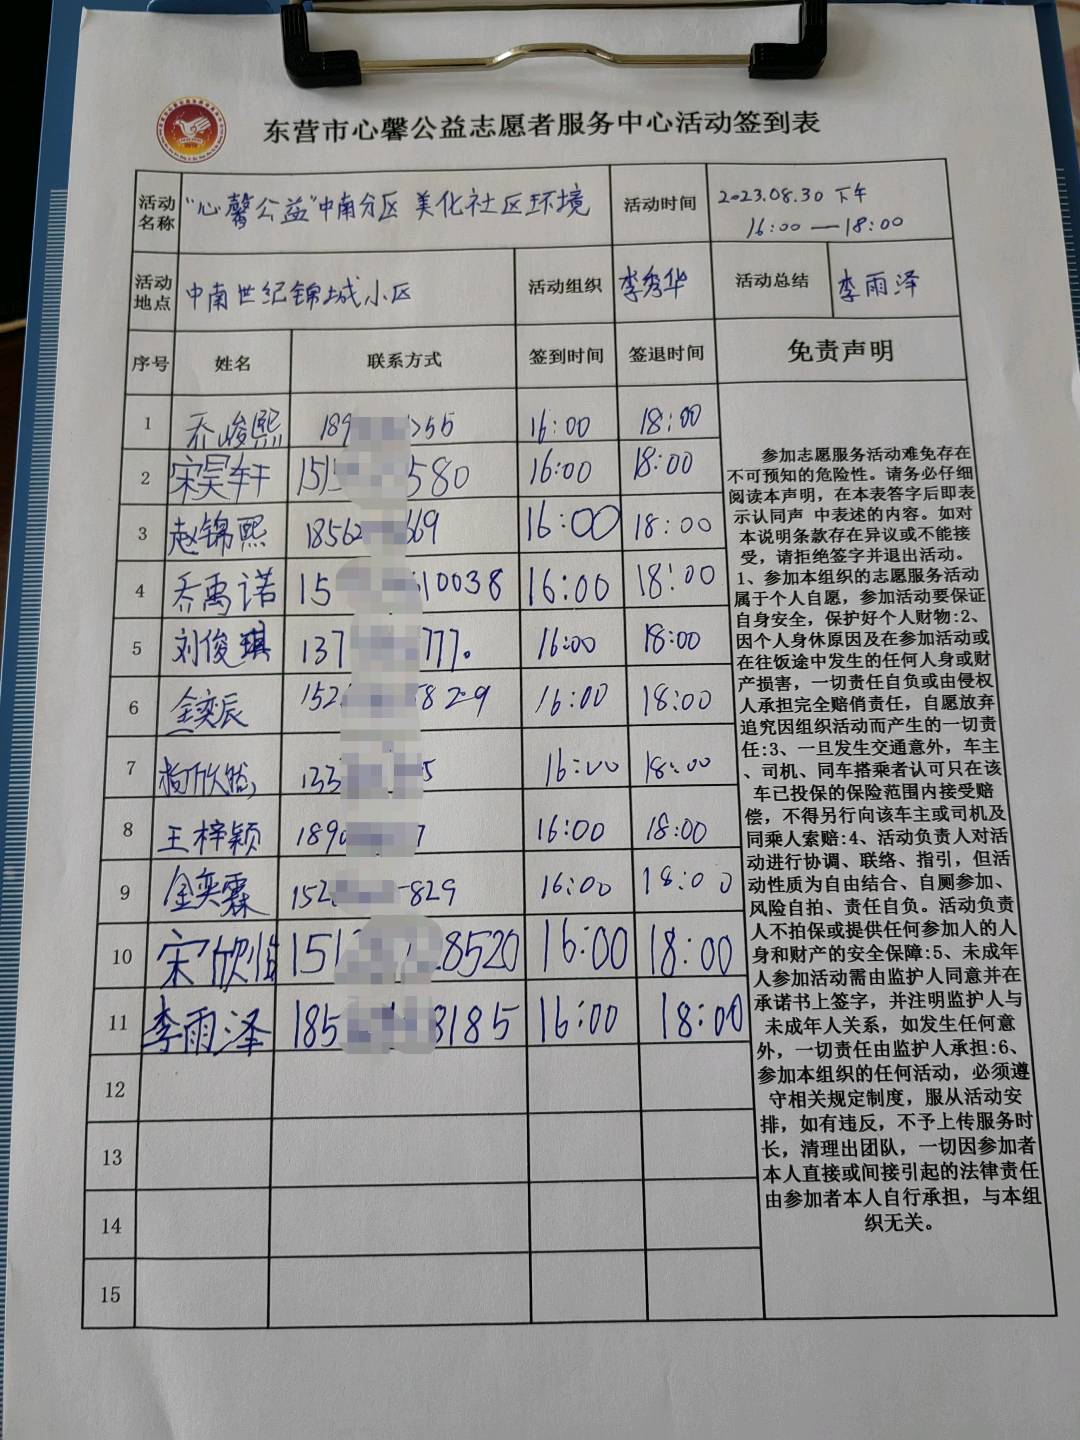 东营市心馨公益志愿者服务中心活动签到表
活动名称 “心馨公益”中南分区 美化社区环境 活动时间 2023.08.30 下午
16:00 — 18:00
活动地点 中南世纪锦城小区 活动组织 李秀华 活动总结 李雨泽
序号 姓名 联系方式 签到时间 签退时间 免责声明
1 乔峻熙 189 255 16:00 18:00
2 宋昊轩 151 580 16:00 18:00
3 赵锦熙 18562 669 16:00 18:00
4 乔禹诺 15 10038 16:00 18:00
5 刘俊琪 137 777. 16:00 18:00
6 金奕辰 152 829 16:00 18:00
7 杨欣然 133 5 16:00 18:00
8 王梓颖 1890 7 16:00 18:00
9 金奕霖 152 829 16:00 18:00
10 宋欣怡 151 28520 16:00 18:00
11 李雨泽 185 3185 16:00 18:00
12
13
14
15
参加志愿服务活动难免存在
不可预知的危险性。请务必仔细
阅读本声明，在本表答字后即表
示认同声 中表述的内容。如对
本说明条款存在异议或不能接
受，请拒绝签字并退出活动。
1、参加本组织的志愿服务活动
属于个人自愿，参加活动要保证
自身安全，保护好个人财物:2、
因个人身休原因及在参加活动或
在往饭途中发生的任何人身或财
产损害，一切责任自负或由侵权
人承担完全赔俏责任，自愿放弃
追究因组织活动而产生的一切责
任:3、一旦发生交通意外，车主
、司机、同车搭乘者认可只在该
车已投保的保险范围内接受赔
偿，不得另行向该车主或司机及
同乘人索赔:4、活动负责人对活
动进行协调、联络、指引，但活
动性质为自由结合、自厕参加、
风险自拍、责任自负。活动负责
人不拍保或提供任何参加人的人
身和财产的安全保障:5、未成年
人参加活动需由监护人同意并在
承诺书上签字，并注明监护人与
未成年人关系，如发生任何意
外，一切责任由监护人承担:6、
参加本组织的任何活动，必须遵
守相关规定制度，服从活动安
排，如有违反，不予上传服务时
长，清理出团队，一切因参加者
本人直接或间接引起的法律责任
由参加者本人自行承担，与本组
织无关。